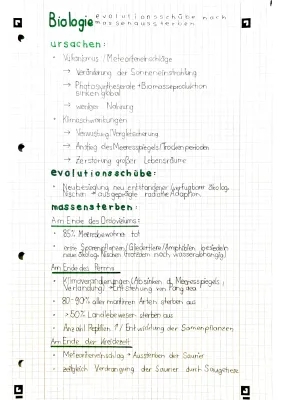 Biologie evolutionsschübe nach
massenaussterben
ursachen:
• Vulkanismus / Meteoriteneinschläge
→ Veränderung der Sonneneinstrahlung
→ Photosyntheserate + Biomasseproduktion
sinken global
→ weniger Nahrung
• Klimaschwankungen
→ Verwüstung / Vergletscherung
→ Anstieg des Meeresspiegels / Trockenperioden
→ Zerstörung großer Lebensräume
evolutionsschübe:
• Neubesiedlung neu entstandener / verfügbarer ökolog.
Nischen → ausgeprägte radiative Adaption
massensterben:
Am Ende des Ordoviziums:
• 85% Meeresbewohner tot
• erste Sporenpflanzen / Gliedertiere / Amphibien besiedeln
neue ökolog. Nischen (trotzdem noch wasserabhängig)
Am Ende des Perms:
• Klimaveränderungen (Absinken d. Meeresspiegels,
Verlandung) → Entstehung von Pangaea
• 80-90% aller marinen Arten sterben aus
• >50% Landlebewesen sterben aus
• Anzahl Reptilien ↑ / Entwicklung der Samenpflanzen
Am Ende der Kreidezeit:
• Meteoriteneinschlag → Aussterben der Saurier
• zeitgleich Verdrängung der Saurier durch Säugetiere